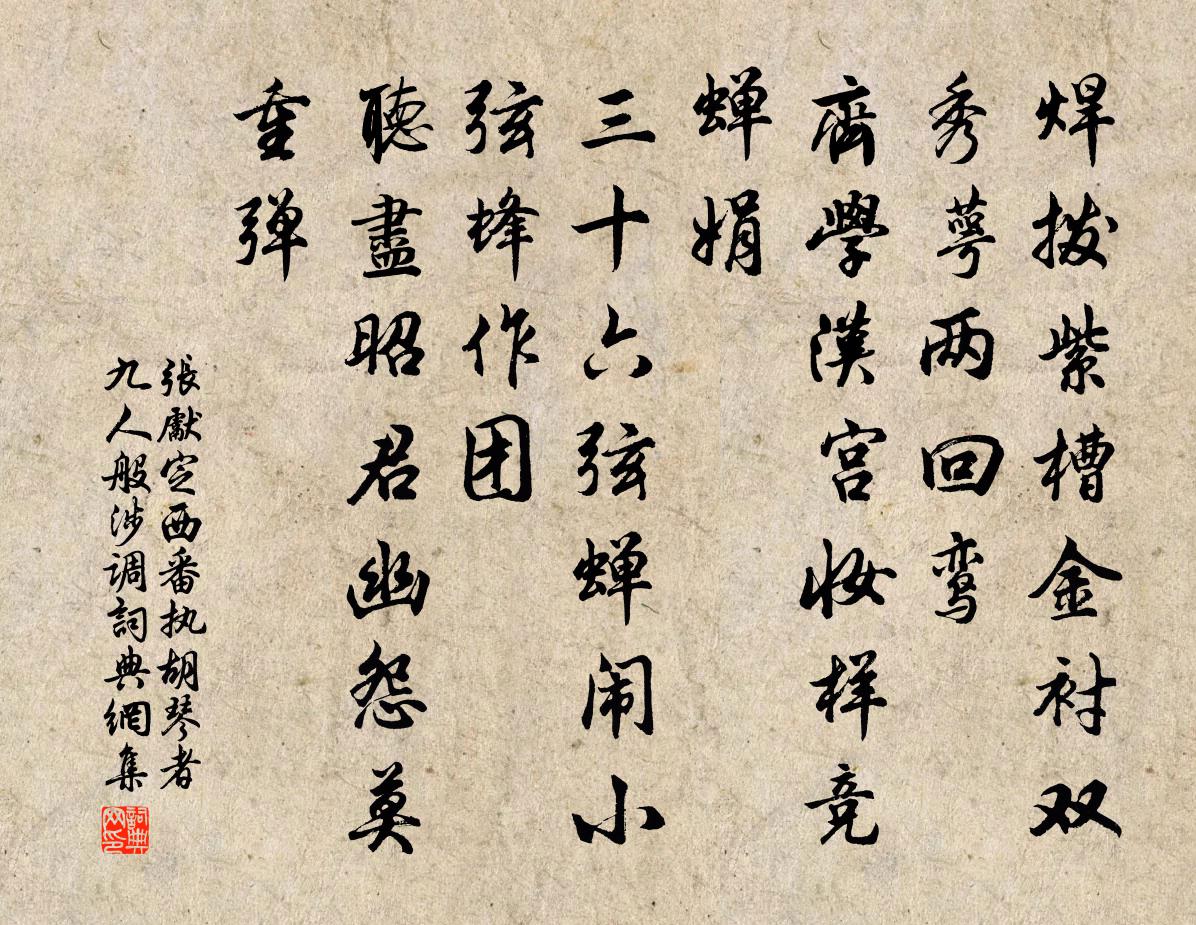 焊拨紫槽金衬双
秀萼两回鸾
齊學漢宫妆样竞
蝉娟
三十六弦蝉闹小
弦蜂作团
聽盡昭君幽怨莫
重弹
張獻定西番执胡琴者
九人般涉调詞典網集
詞典网印